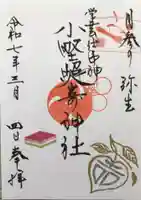 月参り 弥生
学芸仕事神
小野照崎神社
令和七年三月
四日奉拝